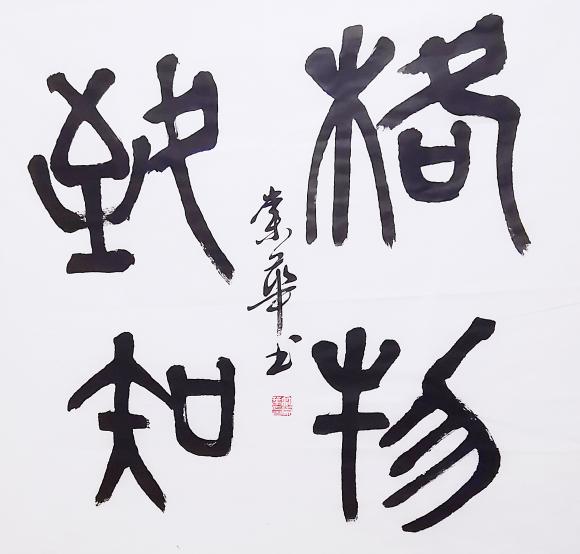 格物
致知
業華书